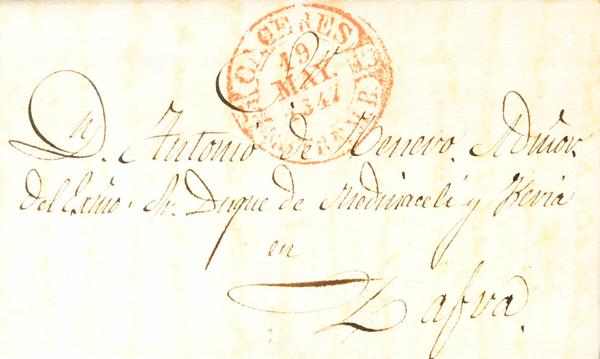 CACERES
19
MAY.
1847
ESTREMAD.
Dn
D. Antonio de Venero. Admor.
del Exmo. Sr. Duque de Medinaceli y Feria
en
Zafra.